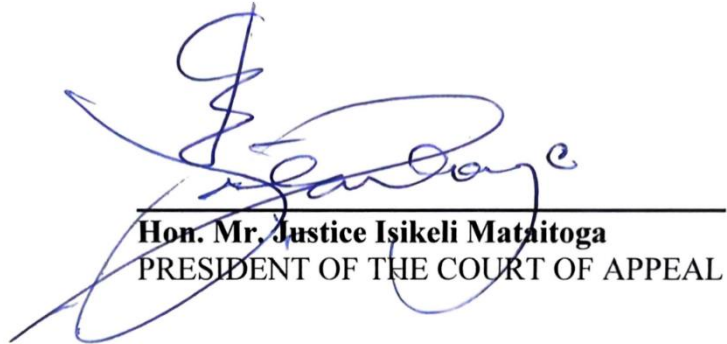 Hon. Mr. Justice Isikeli Mataitoga
PRESIDENT OF THE COURT OF APPEAL